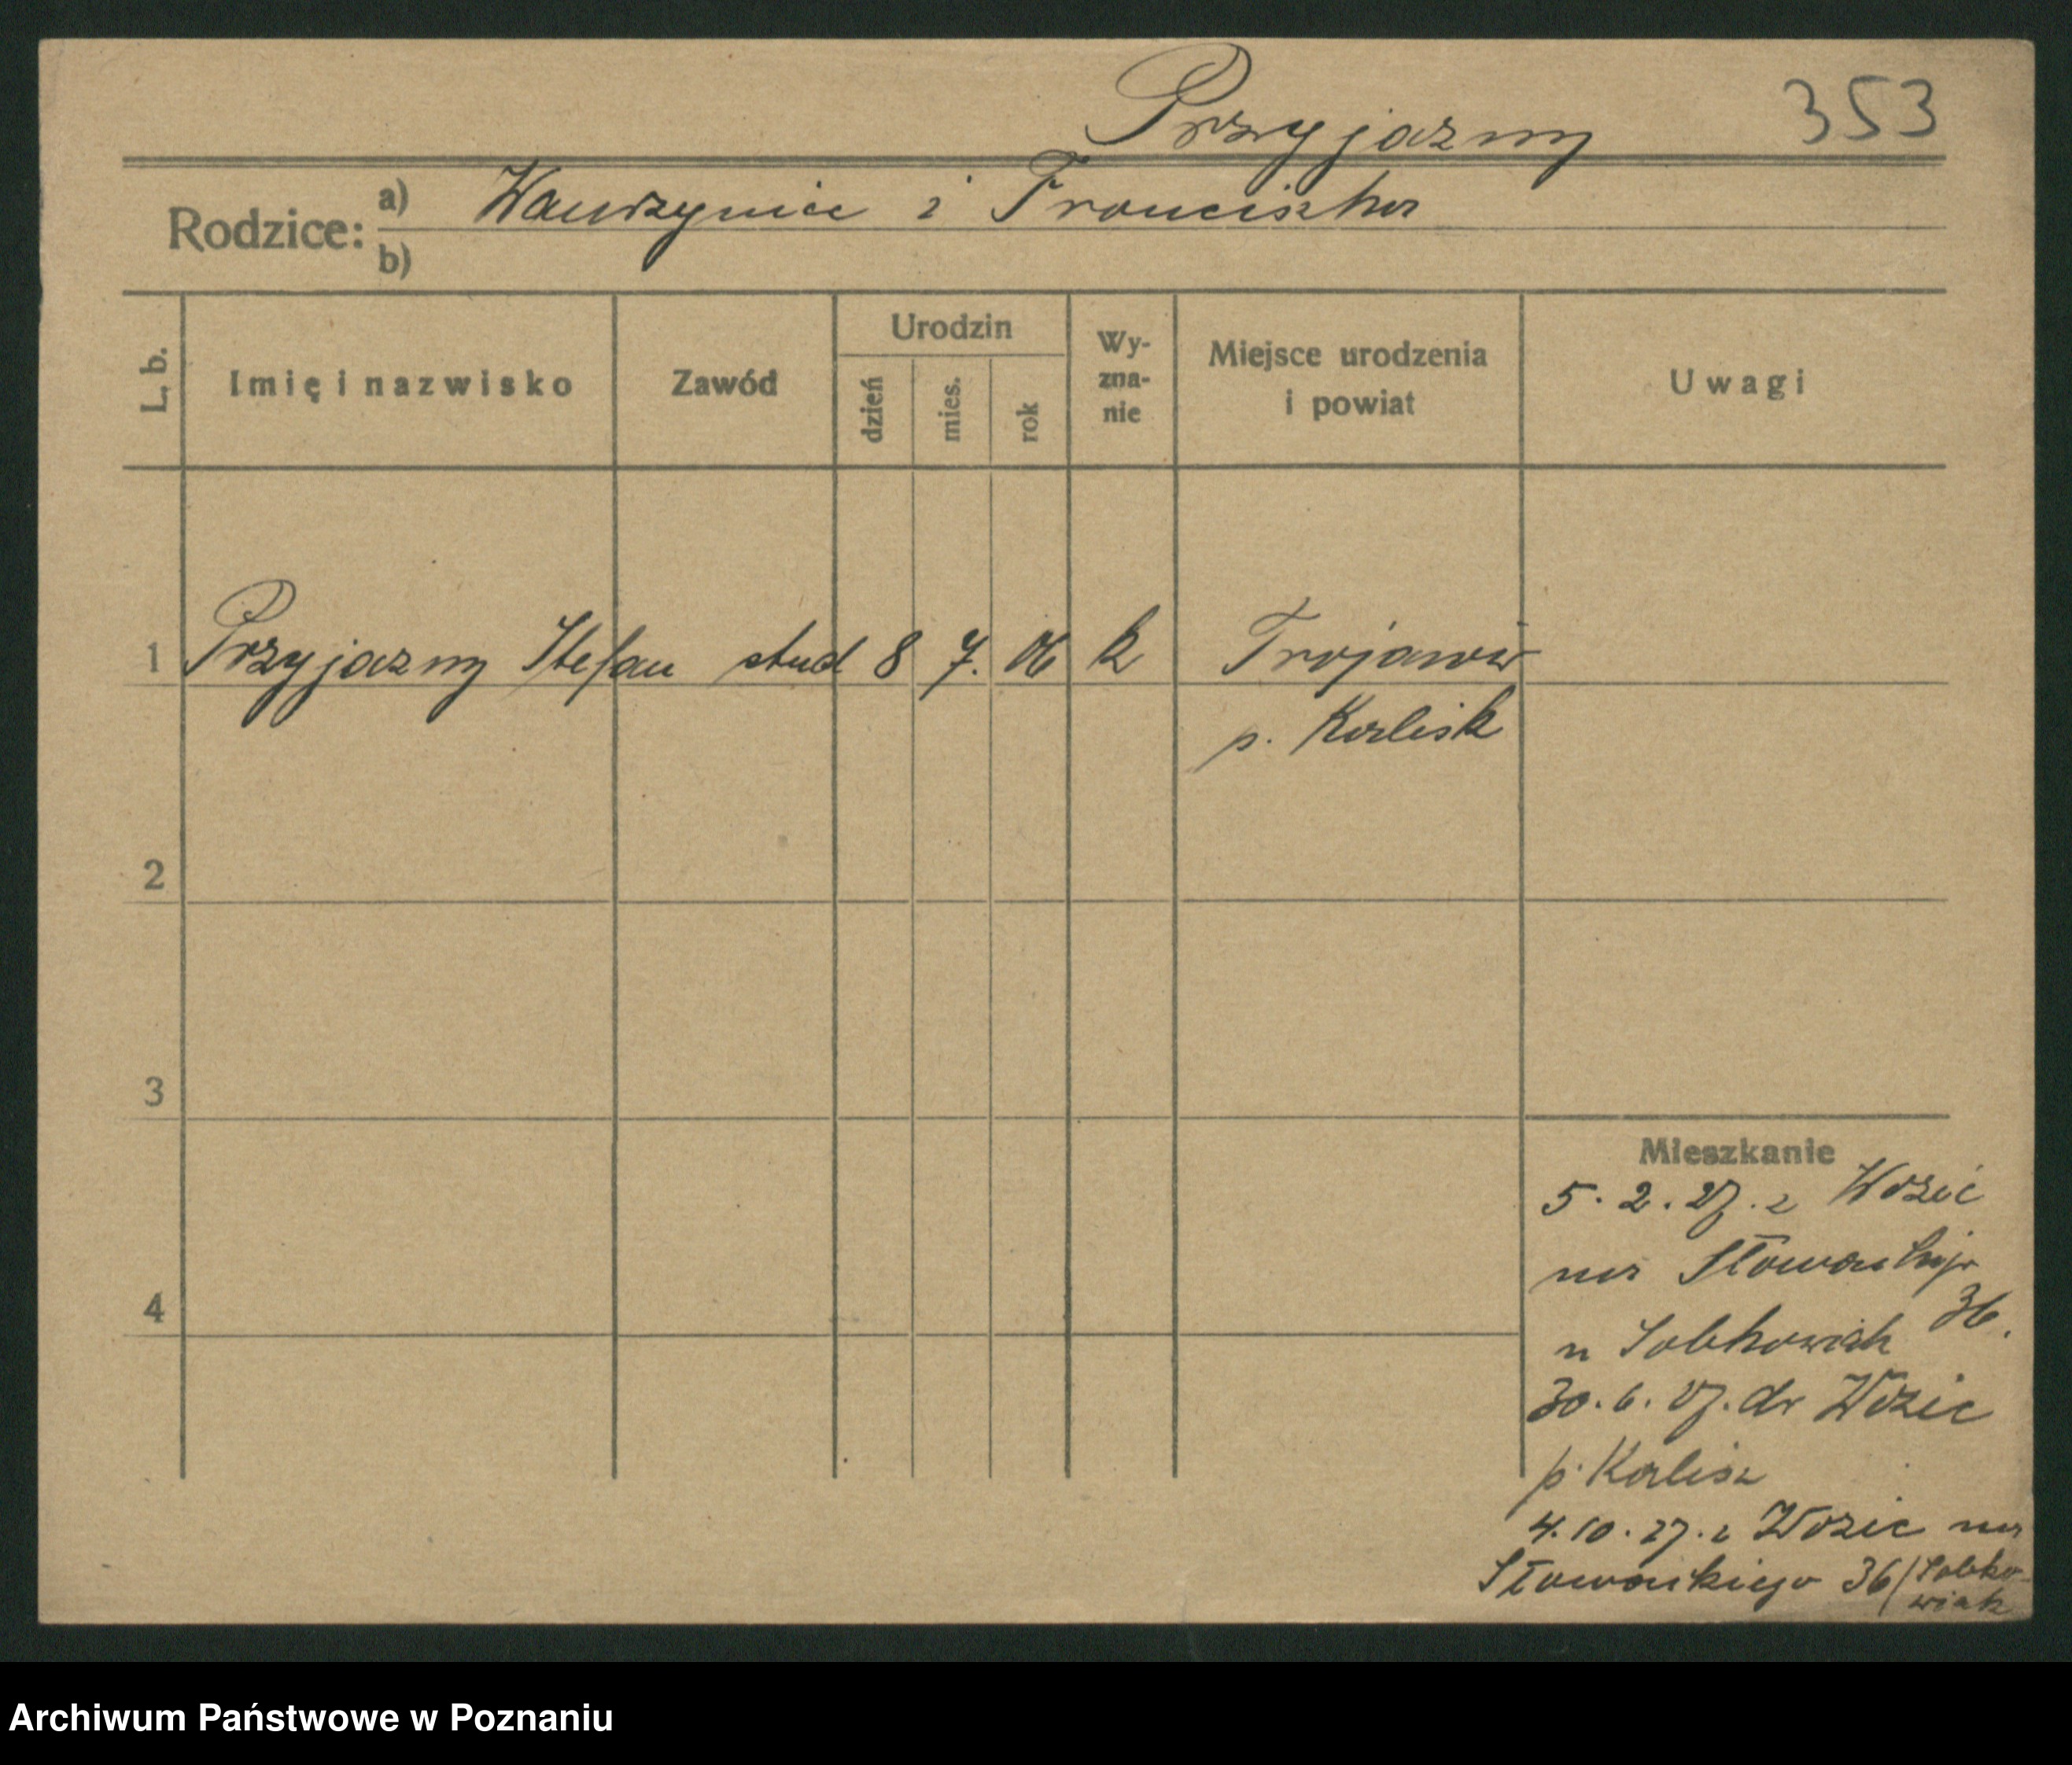 Przyjazny 353
Rodzice: a) Wawrzyniec i Franciszka
b)
L. b. Imię i nazwisko Zawód Urodzin dzień mies. rok Wy-zna-nie Miejsce urodzenia i powiat Uwagi
1 Przyjazny Stefan stud 8 7. 06 k Trojanów
p. Kalisk
2
3
Mieszkanie
5. 2. 27. z
na Słowackiego
36.
4
u Sobkowiak
30. 6. 27. do
p. Kalisz
4. 10. 27. z na
Słowackiego 36/Sobko-
wiak
Archiwum Państwowe w Poznaniu